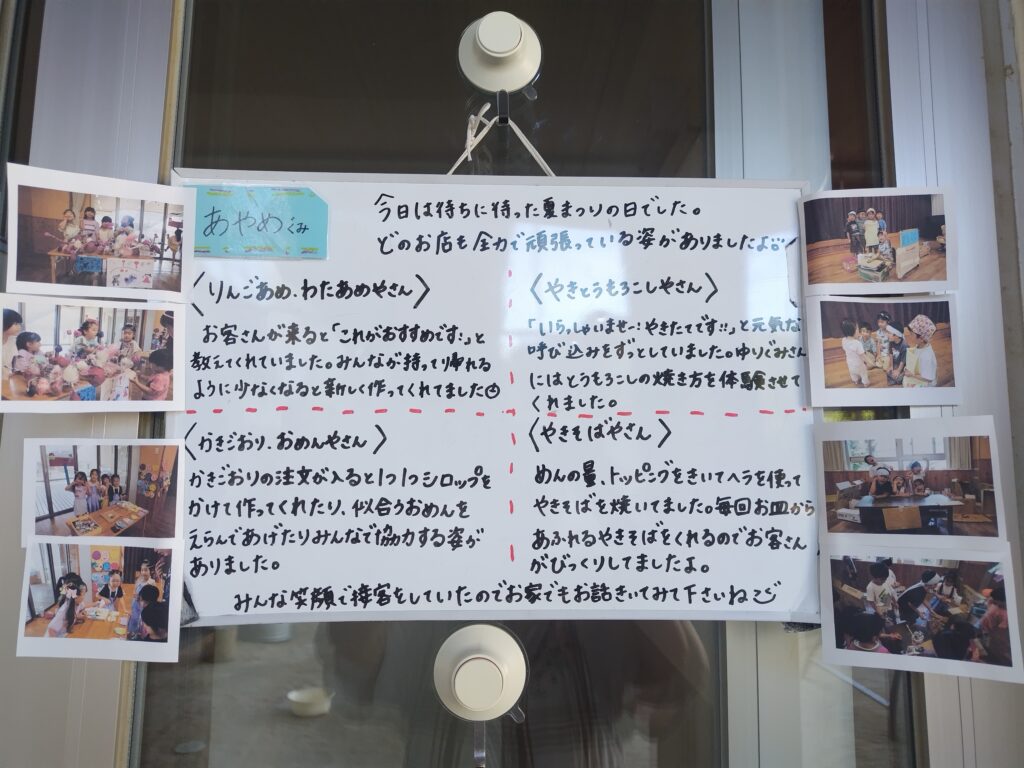 あやめくみ
今日は待ちに待った夏まつりの日でした。
どのお店も全力で頑張っている姿がありましたよ
〈りんごあめ、わたあめやさん〉
お客さんが来ると「これがおすすめです!」と
教えてくれていました。みんなが持って帰れる
ように少なくなると新しく作ってくれてました
〈かきごおり、おめんやさん〉
かきごおりの注文が入ると1つ1つシロップを
かけて作ってくれたり、似合うおめんを
えらんであげたりみんなで協力する姿が
ありました。
〈やきとうもろこしやさん〉
「いらっしゃいませー!やきたてです!!」と元気な
呼び込みをずっとしていました。ゆりぐみさん
にはとうもろこしの焼き方を体験させて
くれました。
〈やきそばやさん〉
めんの量、トッピングをきいてヘラを使って
やきそばを焼いてました。毎回お皿から
あふれるやきそばをくれるのでお客さん
がびっくりしてましたよ。
みんな笑顔で接客をしていたのでお家でもお話きいてみて下さいね